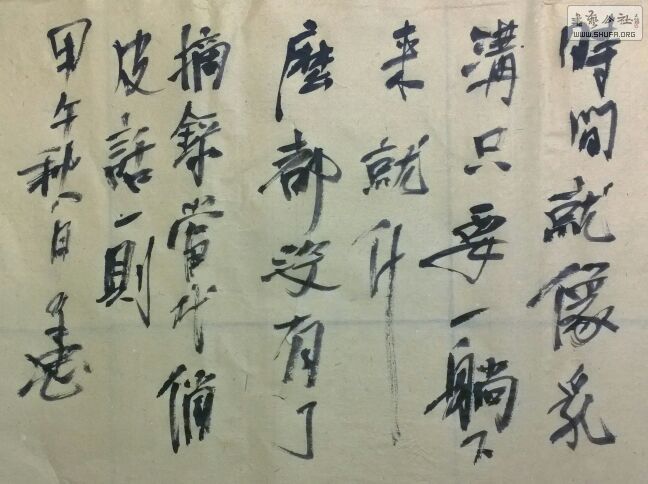 時間就像乳
溝只要一躺下
来就什
麽都没有了
摘錄當代俏
皮話一則
甲午秋八日
書艺公社
WWW.SHUFA.ORG